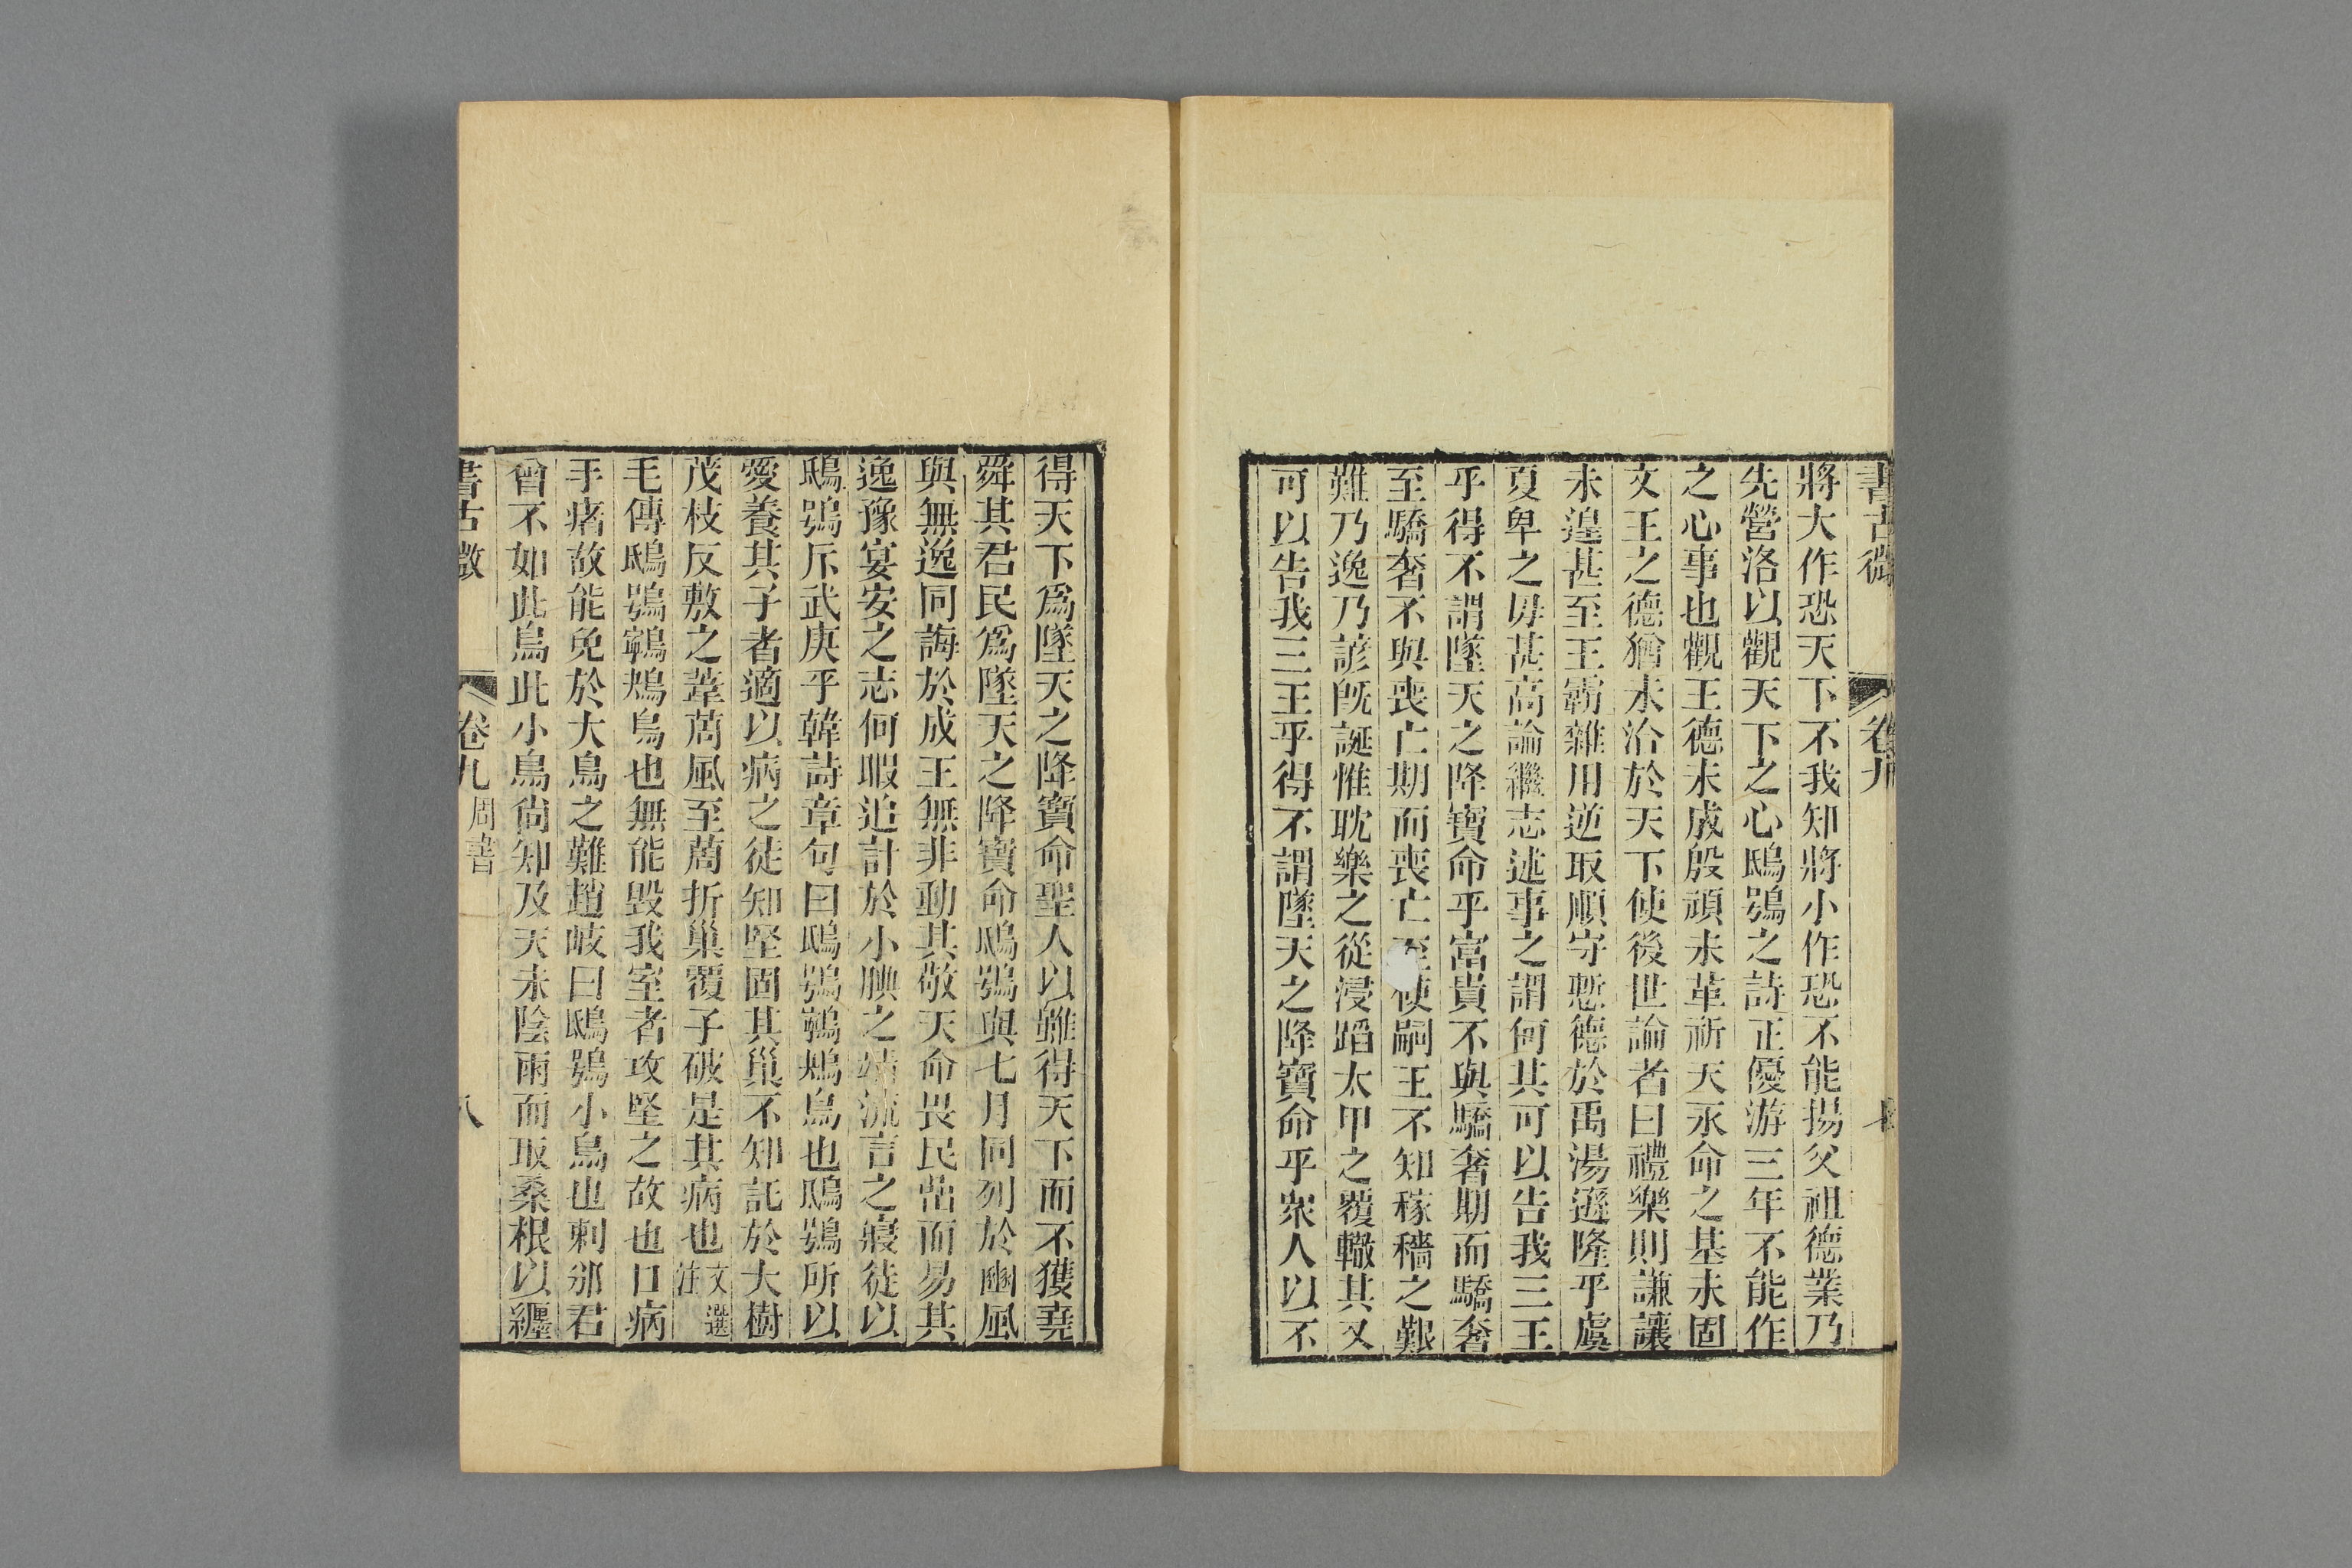 書古微
卷九
將大作恐天下不我知將小作恐不能揚父祖德業乃
先營洛以觀天下之心鴟鴞之詩正優游三年不能作
之心事也觀王德未成殷頑未革祈天永命之基未固
文王之德猶未洽於天下使後世論者曰禮樂則謙讓
未遑甚至王霸雜用逆取順守慙德於禹湯遜隆乎虞
夏卑之毋甚高論繼志述事之謂何其可以告我三王
乎得不謂墜天之降寶命乎富貴不與驕奢期而驕奢
至驕奢不與喪亡期而喪亡至使嗣王不知稼穡之艱
難乃逸乃諺旣誕惟耽樂之從浸蹈太甲之覆轍其又
可以告我三王乎得不謂墜天之降寶命乎眾人以不
得天下爲墜天之降寶命聖人以雖得天下而不獲堯
舜其君民爲墜天之降寶命鴟鴞與七月同列於豳風
與無逸同誨於成王無非動其敬天命畏民喦而易其
逸豫宴安之志何暇追計於小腆之靖流言之寢徒以
鴟鴞斥武庚乎韓詩章句曰鴟鴞鸋鴂鳥也鴟鴞所以
愛養其子者適以病之徒知堅固其巢不知託於大樹
茂枝反敷之葦䓍風至䓍折巢覆子破是其病也文選注
毛傳鴟鴞鸋鴂鳥也無能毀我室者攻堅之故也口病
手瘏故能免於大鳥之難趙岐曰鴟鴞小鳥也刺邠君
曾不如此鳥此小鳥尙知及天未陰雨而取桑根以纏
書古微
卷九
周書
八